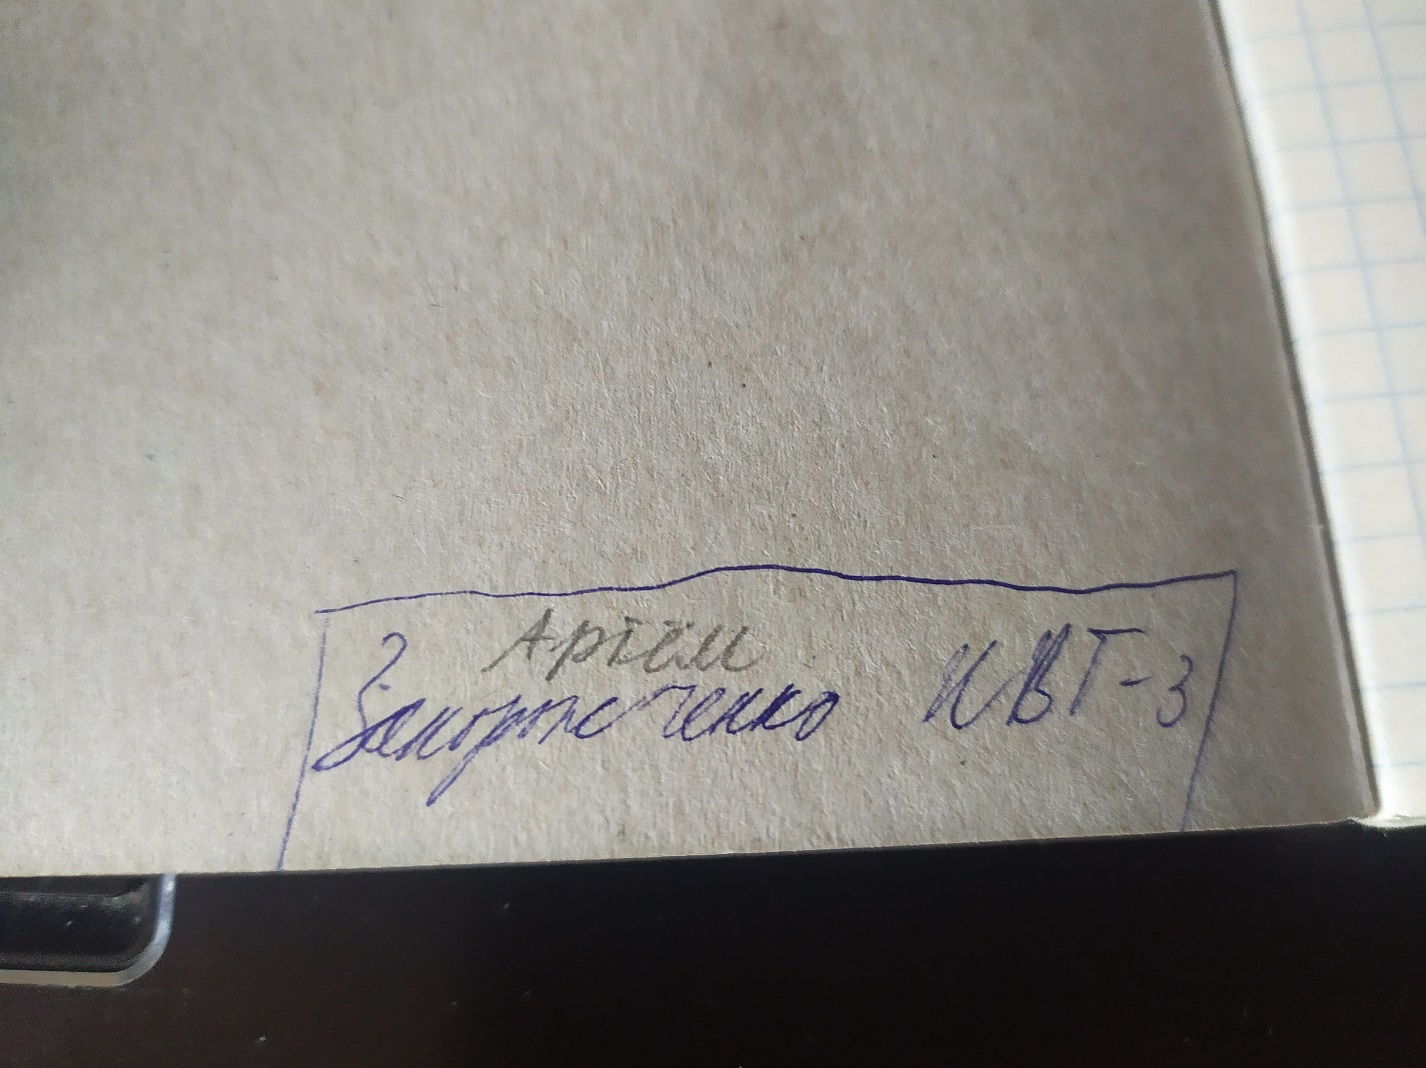 Артём
Закоропченко ИВТ-3